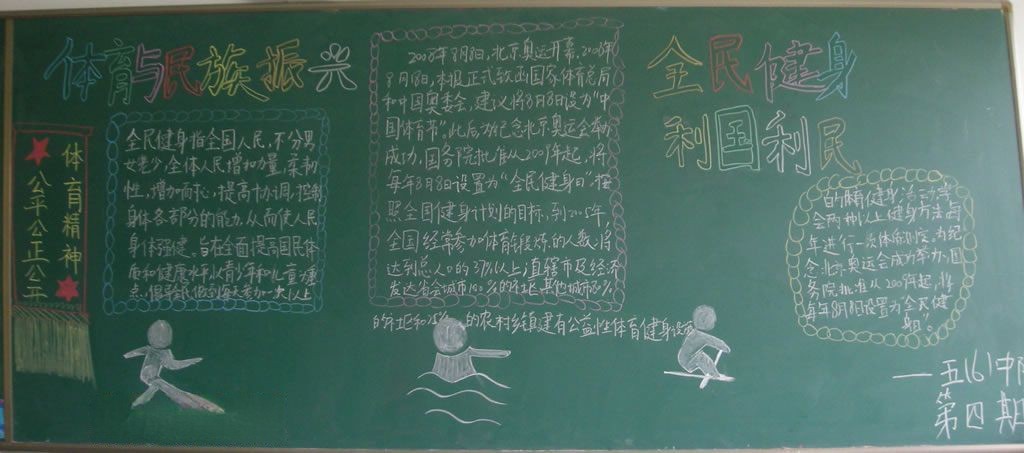 体育与民族振兴
体育精神
公平公正公平
全民健身指全国人民,不分男
女老少,全体人民增加力量,柔韧
性,增加耐心,提高协调,控制
身体各部分的能力,从而使人民
身体强健。旨在全面提高国民体
质和健康水平,以青少年和儿童为重
点,倡导全民做到每天参加一次以上
2008年8月8日,北京奥运开幕,2008年
8月18日,本报正式致函国家体育总局
和中国奥委会,建议将8月8日设为“中
国体育节”。此后为纪念北京奥运会举办
成功,国务院批准从2009年起,将
每年8月8日设置为“全民健身日”,按
照全国健身计划的目标,到2005年,
全国经常参加体育锻炼的人数,将
达到总人口的37%以上;直辖市及经济
发达省会城市100%的社区,其他城市
的社区和 的农村乡镇建有公益性体育健身设
全民健身
利国利民
的体育健身活动,学
会两种以上健身方法,每
年进行一次体质测定。为纪
念北京奥运会成功举办,国
务院批准从2009年起,将
每年8月8日设置为“全民健
身日”。
——五(6)中队
第四期